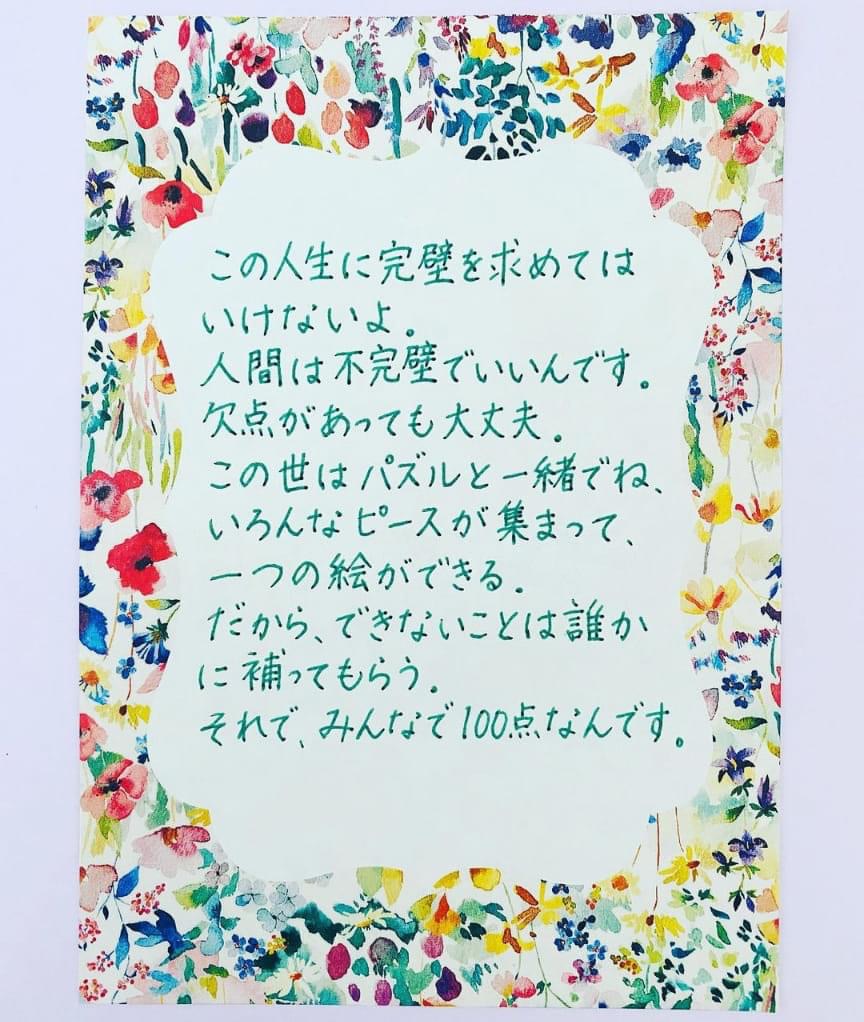 この人生に完璧を求めては
いけないよ。
人間は不完璧でいいんです。
欠点があっても大丈夫。
この世はパズルと一緒でね、
いろんなピースが集まって、
一つの絵ができる。
だから、できないことは誰か
に補ってもらう。
それで、みんなで100点なんです。